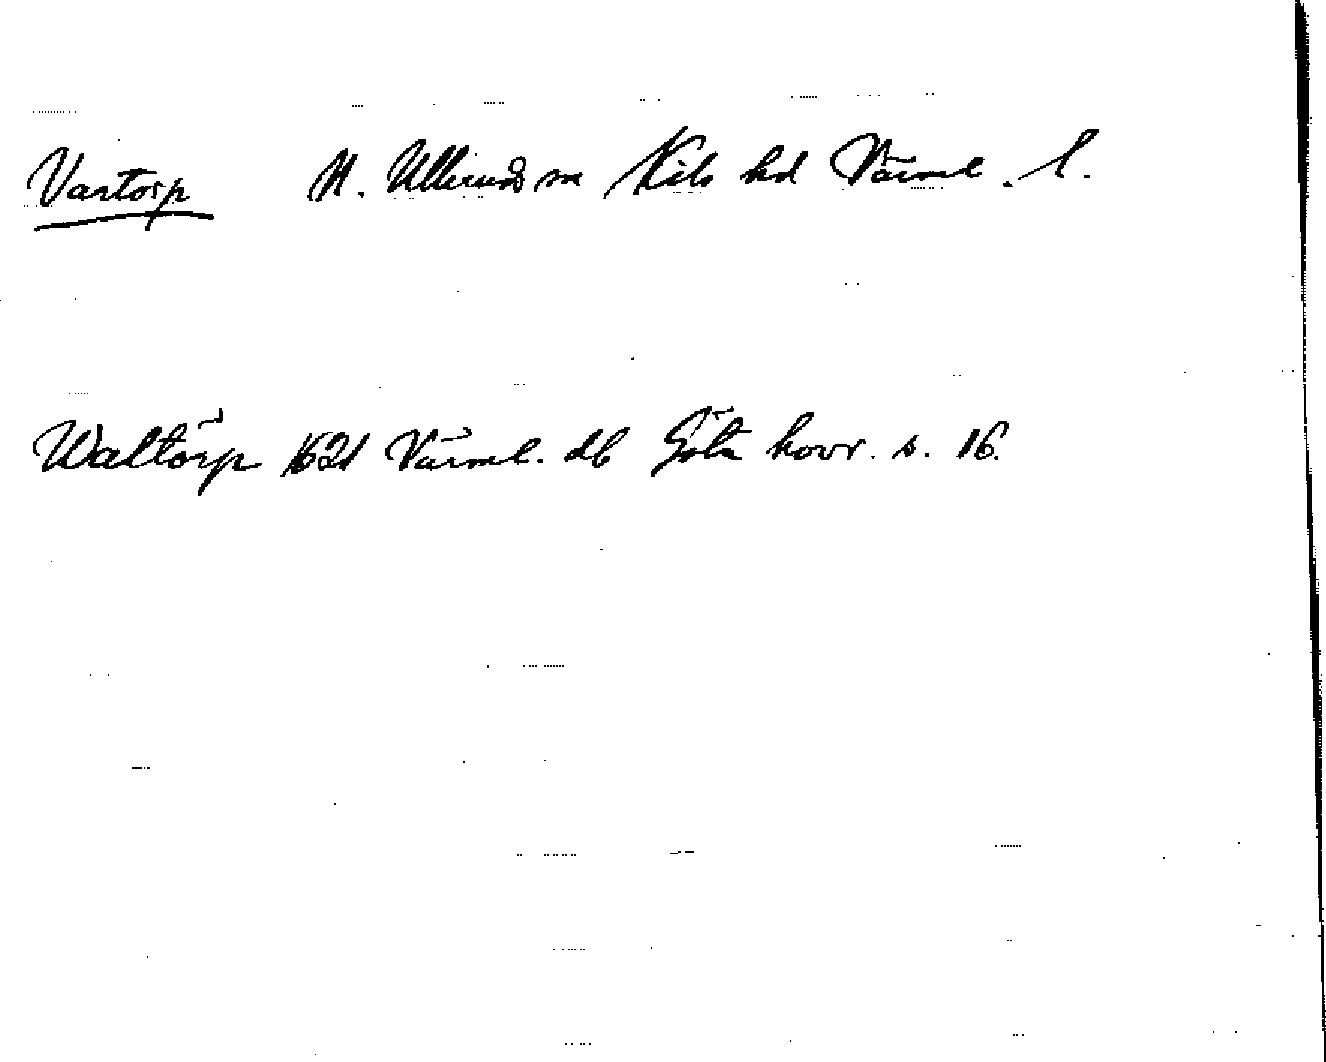 Vartorp N. Ulleruds sn Kils hd Värml. l.
Waltörp 1621 Värml. db Göta hovr. s. 16.